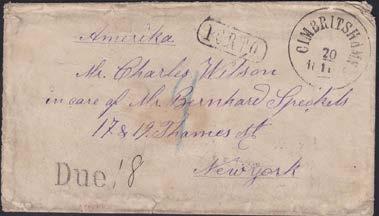 Amerika
PORTO
CIMBRITSHAMN
20
Mr. Charles Wilson
in care of Mr. Bernhard Spreckels
17 & 19. Thames St
New York
Due. 8